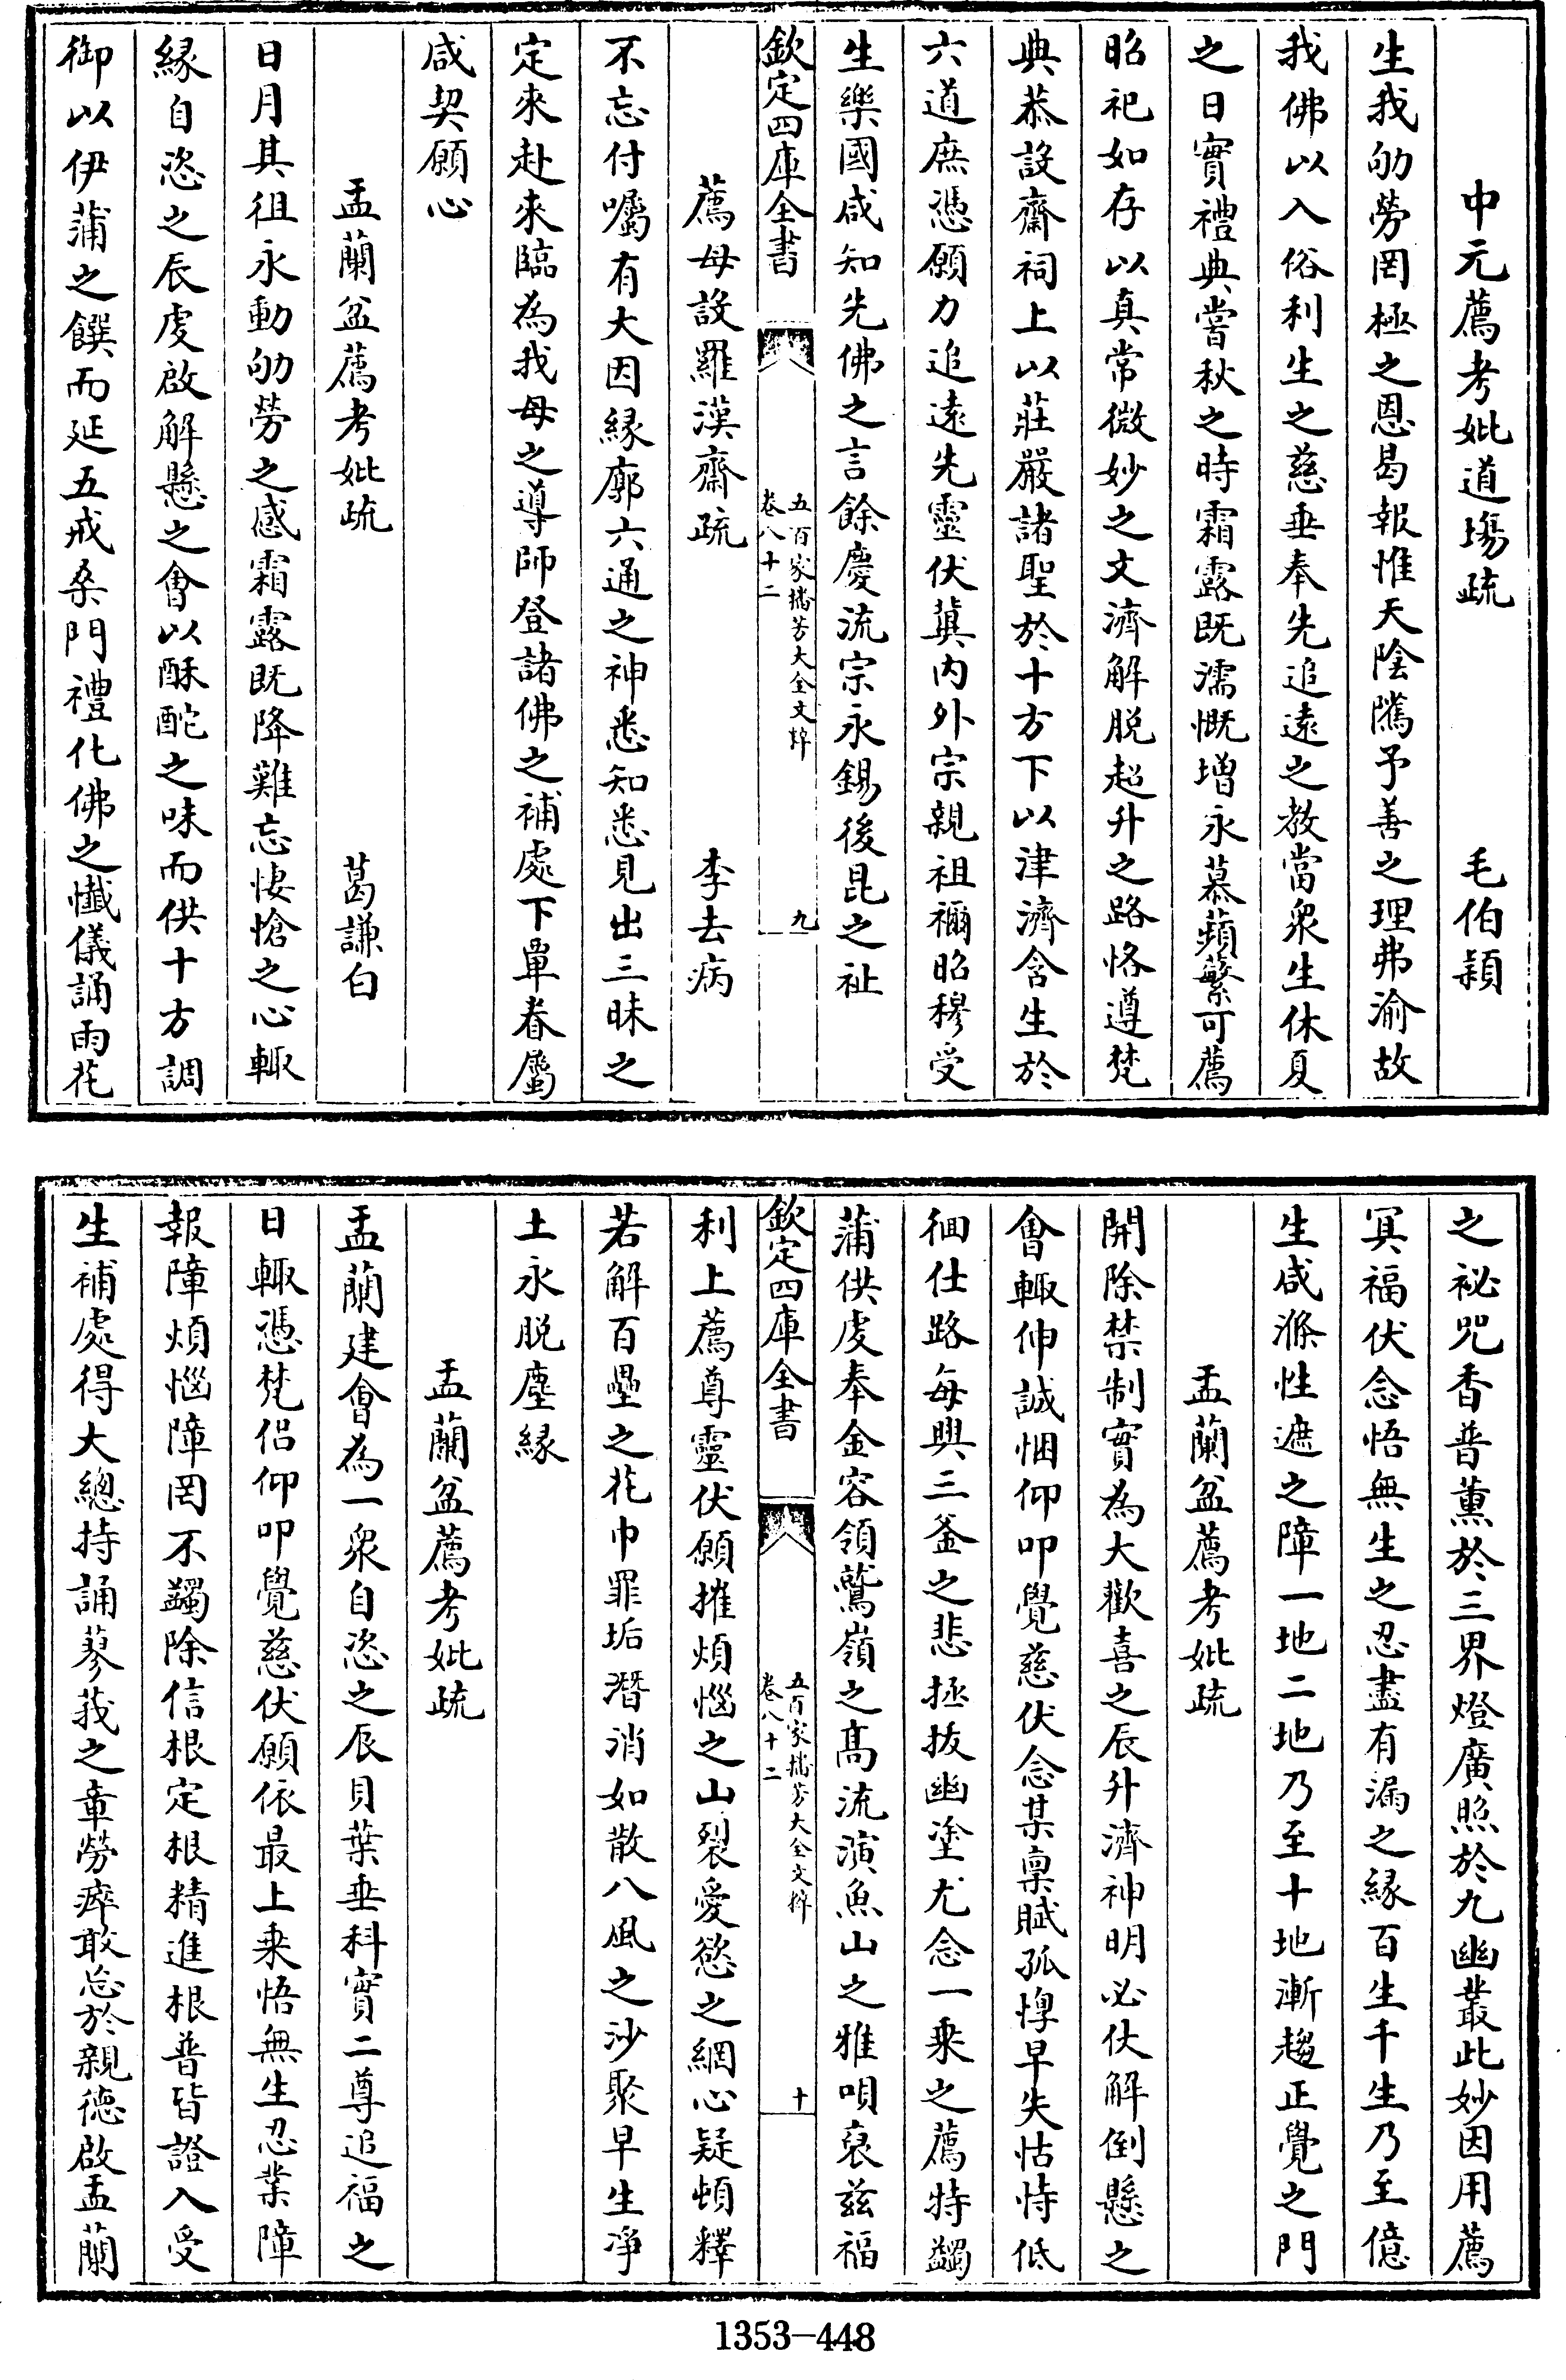 中元薦考妣道場疏　毛伯頴
生我劬勞罔極之恩曷報惟天隂隲予善之理弗渝故
我佛以入俗利生之慈垂奉先追遠之教當衆生休夏
之日實禮典嘗秋之時霜露既濡慨增永慕蘋蘩可薦
昭祀如存以真常微妙之文濟解脱超升之路恪遵梵
典恭設齋祠上以莊嚴諸聖於十方下以津濟含生於
六道庶憑願力追遠先靈伏冀内外宗親祖禰昭穆受
生樂國咸知先佛之言餘慶流宗永錫後昆之祉
欽定四庫全書　五百家播芳大全文粹　卷八十二　九
薦母設羅漢齋疏　李去病
不忘付囑有大因縁廓六通之神悉知悉見出三昧之
定來赴來臨為我母之導師登諸佛之補處下單眷屬
咸契願心
盂蘭盆薦考妣疏　葛謙白
日月其徂永動劬勞之感霜露既降難忘悽愴之心輙
縁自恣之辰虔啟解懸之會以酥酡之味而供十方調
御以伊蒲之饌而延五戒桑門禮化佛之懺儀誦雨花
之祕咒香普薫於三界燈廣照於九幽叢此妙因用薦
冥福伏念悟無生之忍盡有漏之縁百生千生乃至億
生咸滌性遮之障一地二地乃至十地漸趨正覺之門
盂蘭盆薦考妣疏
開除禁制實為大歡喜之辰升濟神明必仗解倒懸之
會輙伸誠悃仰叩覺慈伏念某禀賦孤惸早失怙恃低
徊仕路每興三釡之悲拯拔幽塗尤念一乘之薦特蠲
蒲供虔奉金容領鷲嶺之髙流演魚山之雅唄裒兹福
欽定四庫全書　五百家播芳大全文粹　卷八十二　十
利上薦尊靈伏願摧煩惱之山裂愛慾之網心疑頓釋
若解百疊之花巾罪垢潛消如散八風之沙聚早生凈
土永脱塵縁
盂蘭盆薦考妣疏
盂蘭建會為一衆自恣之辰貝葉垂科實二尊追福之
日輙憑梵侣仰叩覺慈伏願依最上乘悟無生忍業障
報障煩惱障罔不蠲除信根定根精進根普皆證入受
生補處得大總持誦蓼莪之章勞瘁敢忘於親德啟盂蘭
1353-448